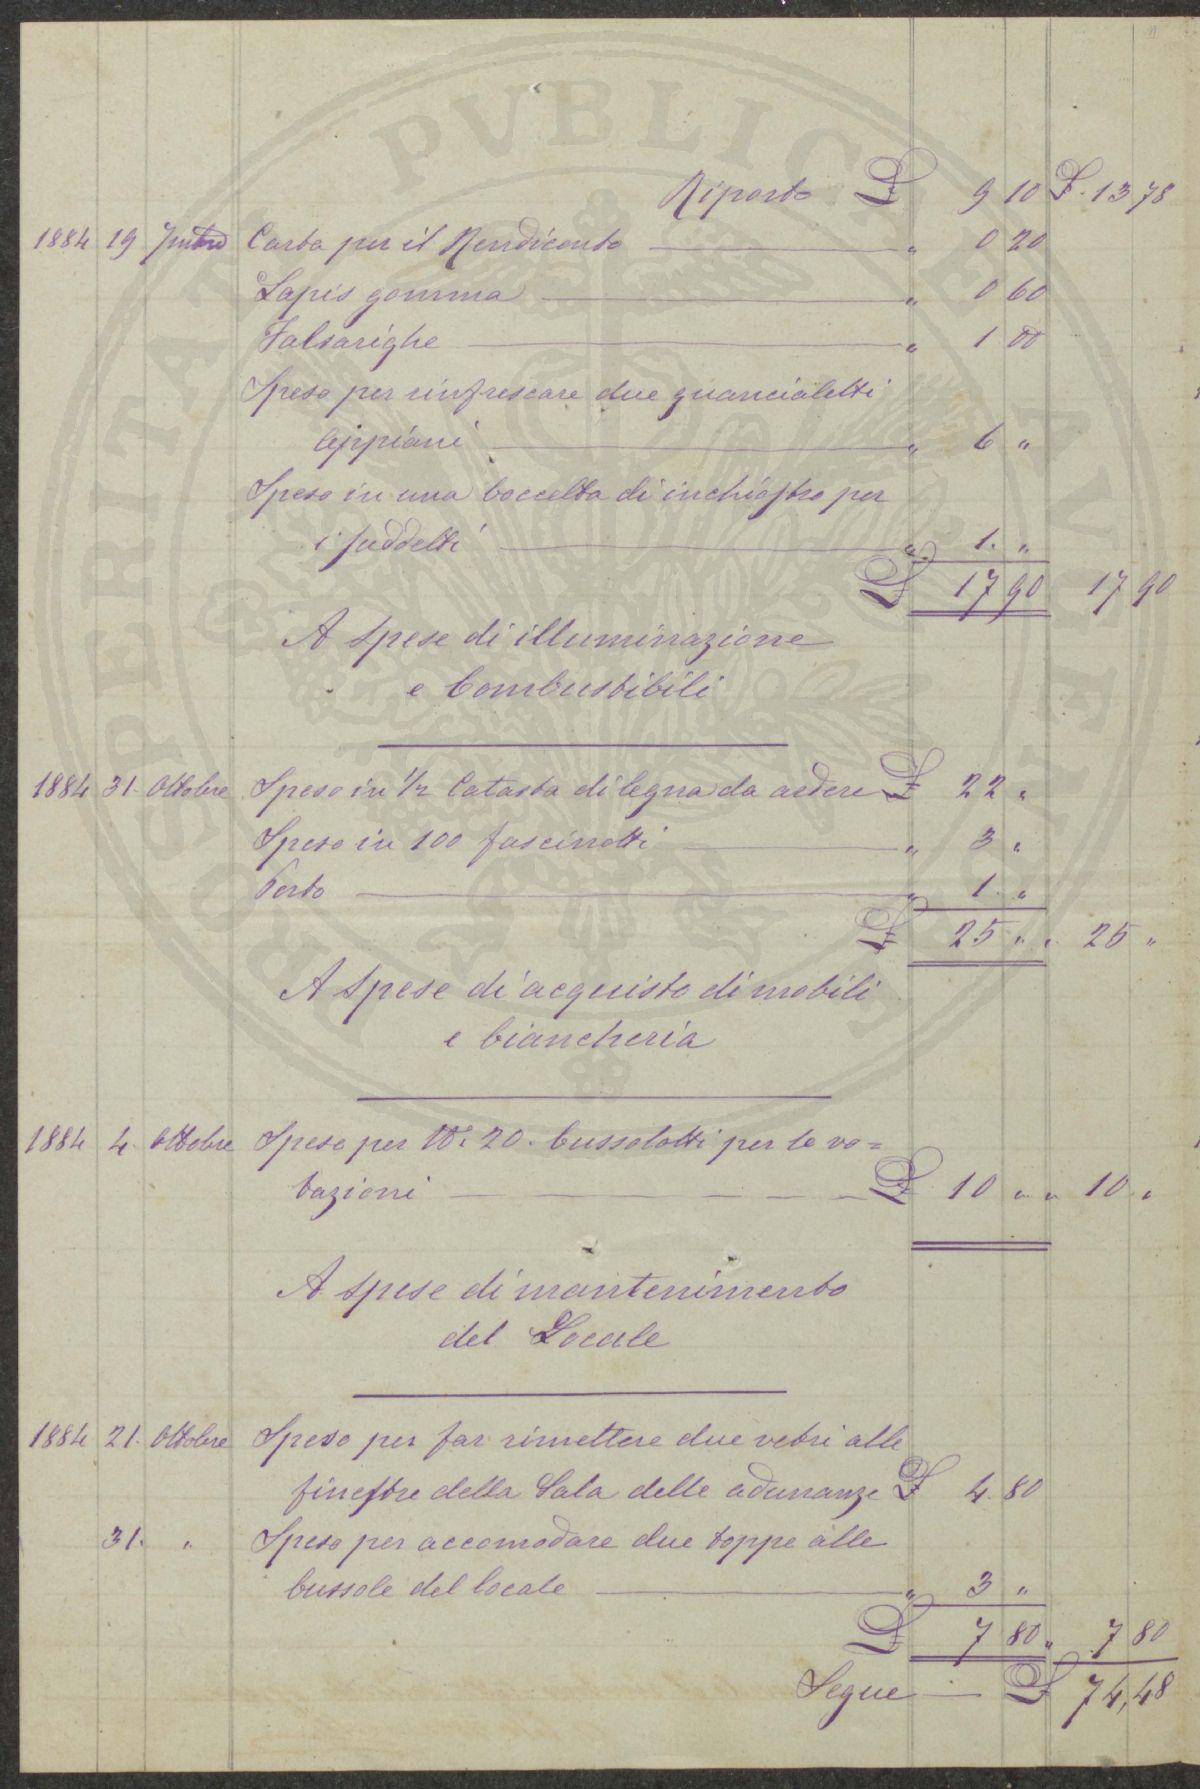 Riporto £ 9 10 £. 13 78
1884 19 Carta per il Rendiconto " 0 20
Lapis gomma " 0 60
Falsarighe " 1 00
Speso per rinfrescare due guancialetti
Appiani " 6 "
Speso in una boccetta di inchiostro per
i suddetti " 1. "
£ 17 90 17 90
A Spese di illuminazione
e Combustibili
1884 31. Ottobre Speso in 1/2 Catasta di legna da ardere £ 22 "
Speso in 100 fascinotti " 3 "
Porto " 1. "
£ 25 " " 25 "
A Spese di acquisto di mobili
e biancheria
1884 4. Ottobre Speso per N.° 20. bussolotti per le vo=
tazioni £ 10 " " 10 "
A Spese di mantenimento
del Locale
1884 21. Ottobre Speso per far rimettere due vetri alle
finestre della Sala delle adunanze £ 4. 80
31. " Speso per accomodare due toppe alle
bussole del locale " 3 "
£ 7 80 " 7 80
Segue £ 74,48
PROSPERITATI PUBLICAE AUGENDAE